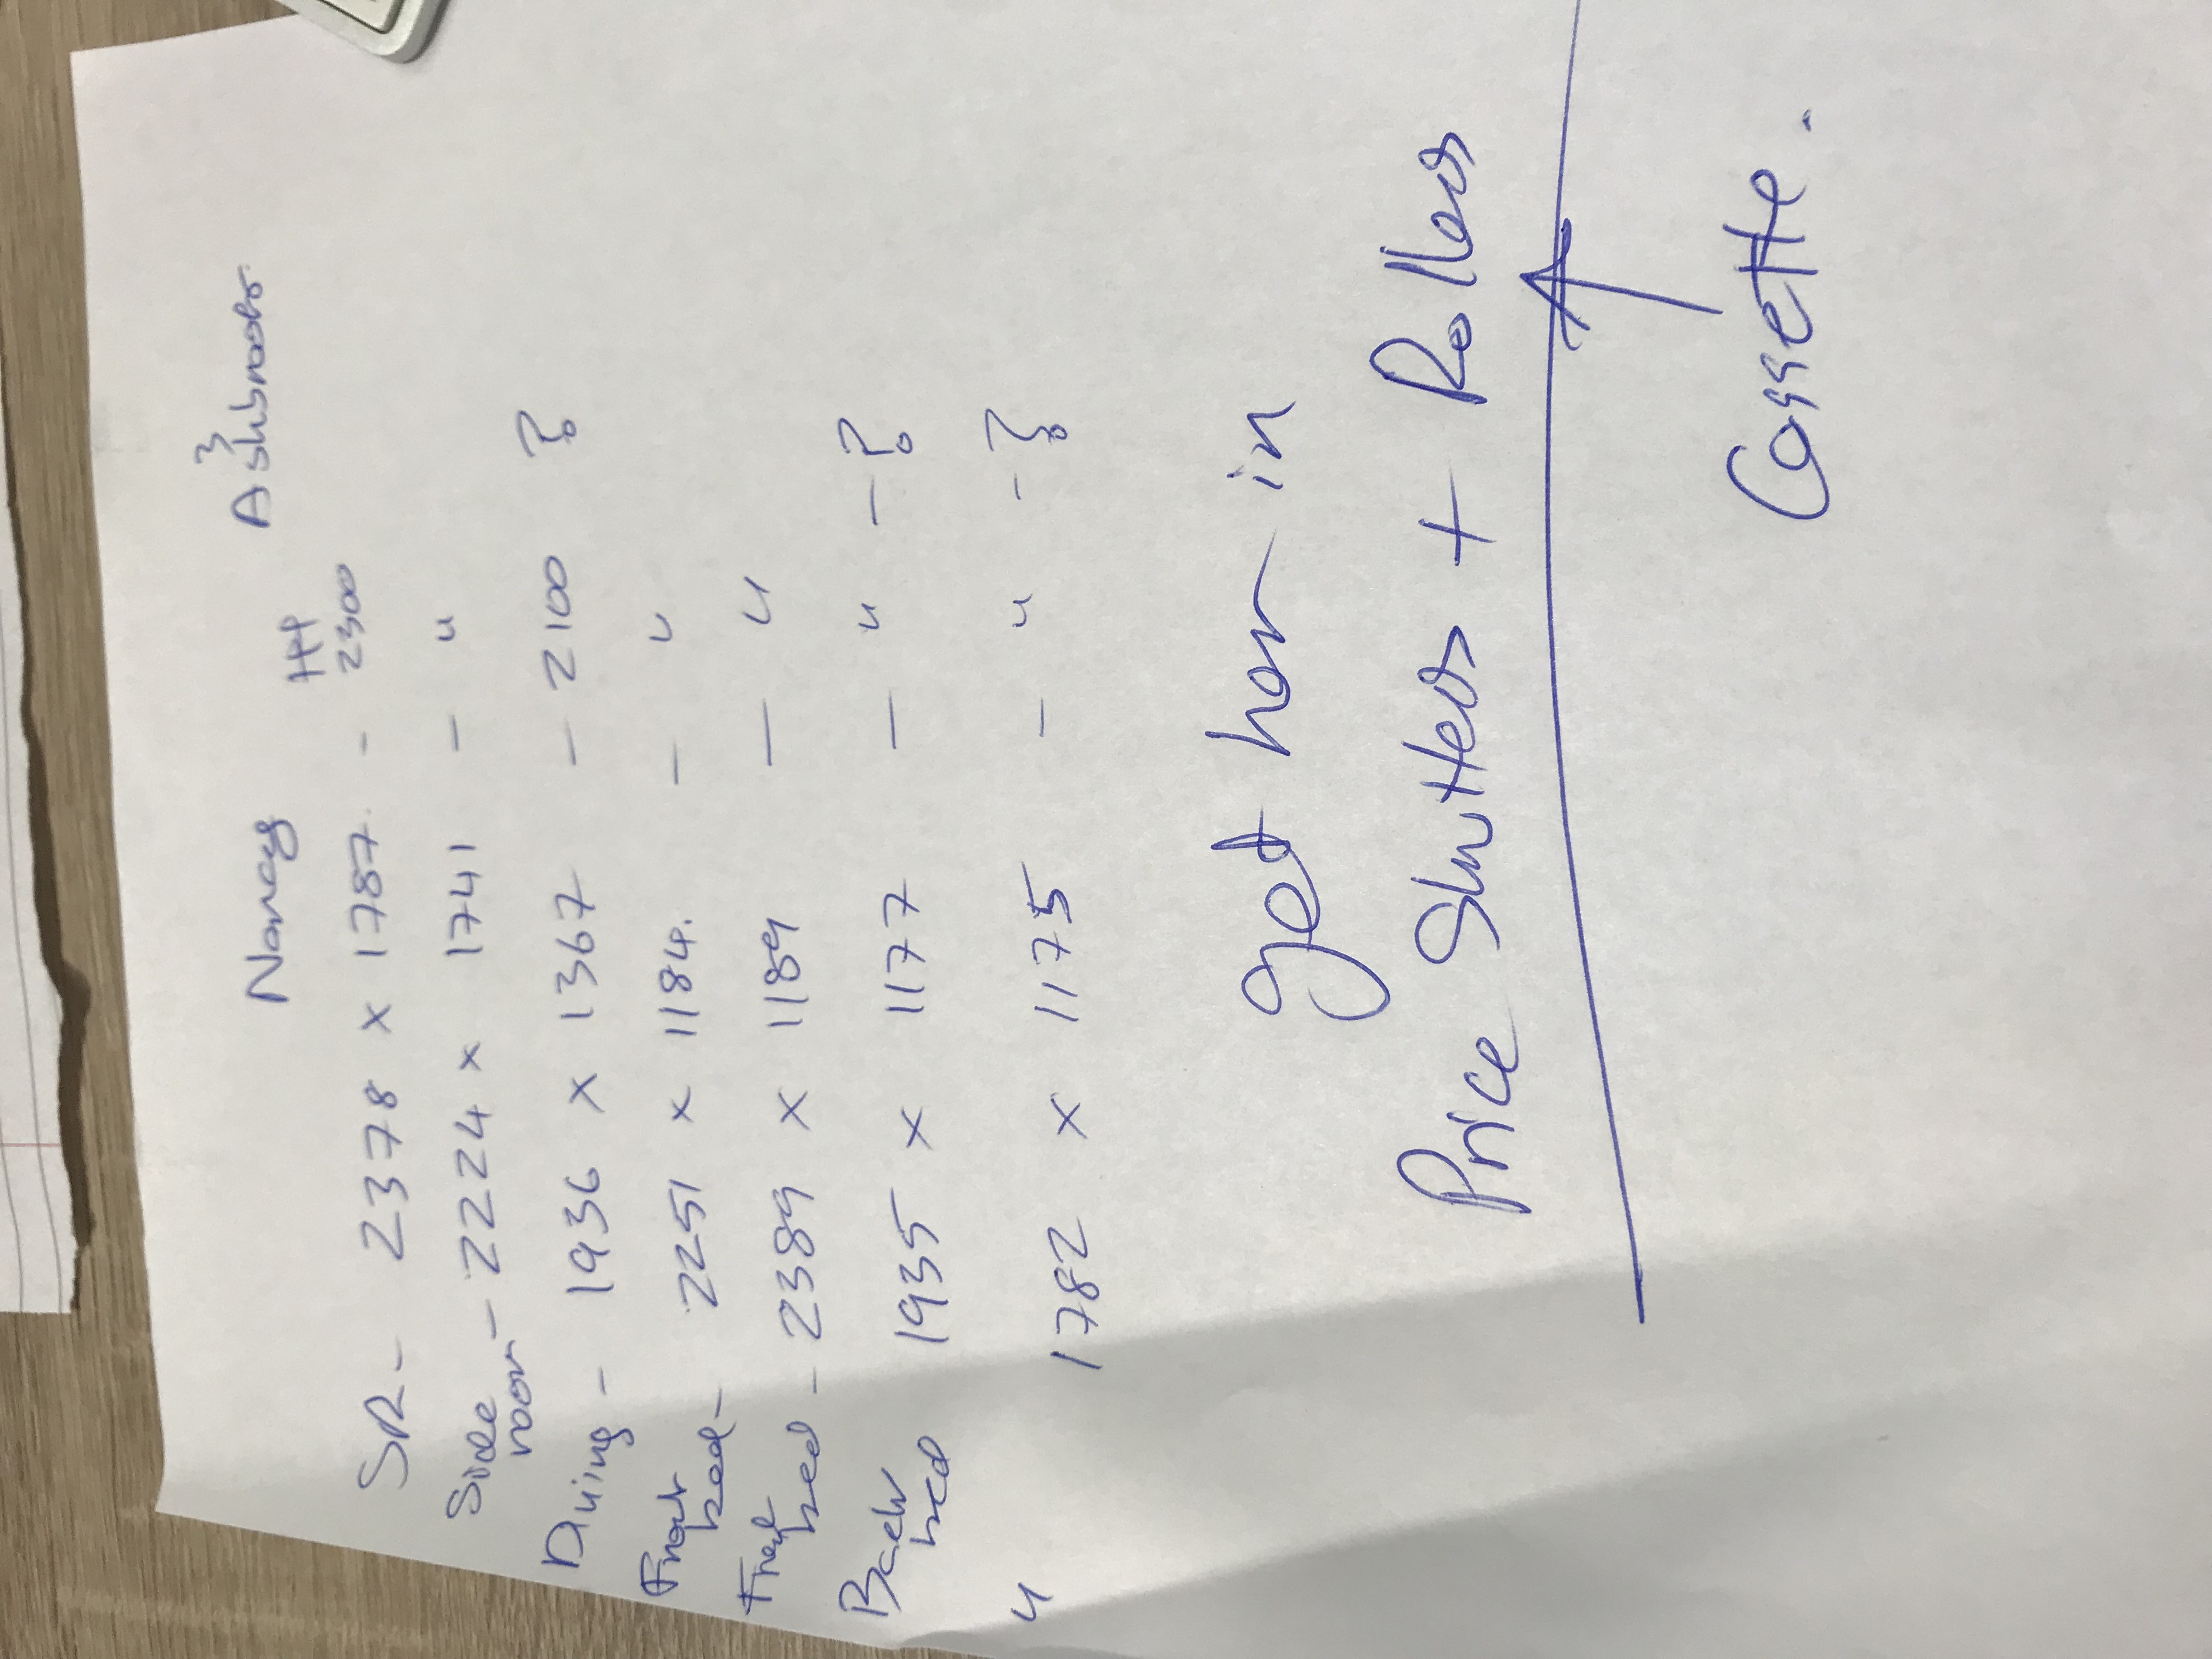 Nancy 3 Ashbrooks
HH
SR - 2378 x 1787 - 2300
Side room - 2224 x 1741 - "
Dining - 1936 x 1367 - 2100 ?
Front bed - 2251 x 1184 - "
Front bed - 2389 x 1189 - "
Back bed 1935 x 1177 - " - ?
" 1782 x 1175 - " - ?
get her in
Price Shutters + Rollers
Cassette.